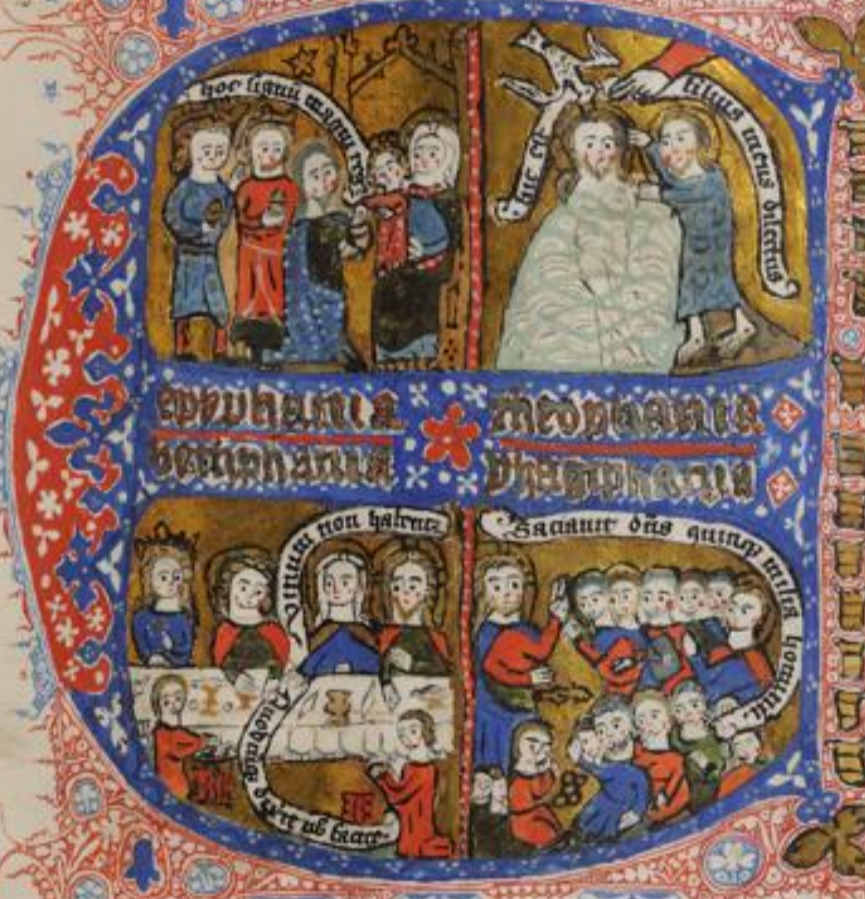 hoc signū magni regis
hic est
filius meus dilectus
epyphania theophania
bethphania phagiphania
vinum non habent
dix'it vob facite
Saciauit dn̄s quinqꝫ milia hominū